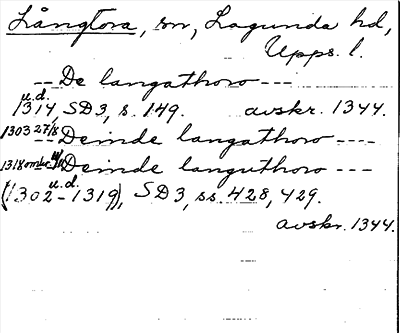 Långtora, sn, Lagunda hd,
Upps. l.
--- De langathoro ---
u.d.
1314, SD3, s. 149. avskr. 1344.
1303 27/8 --- Deinde langathoro ---
1318 --- Deinde languthoro ---
u.d.
(1302-1319), SD3, ss. 428, 429.
avskr. 1344.